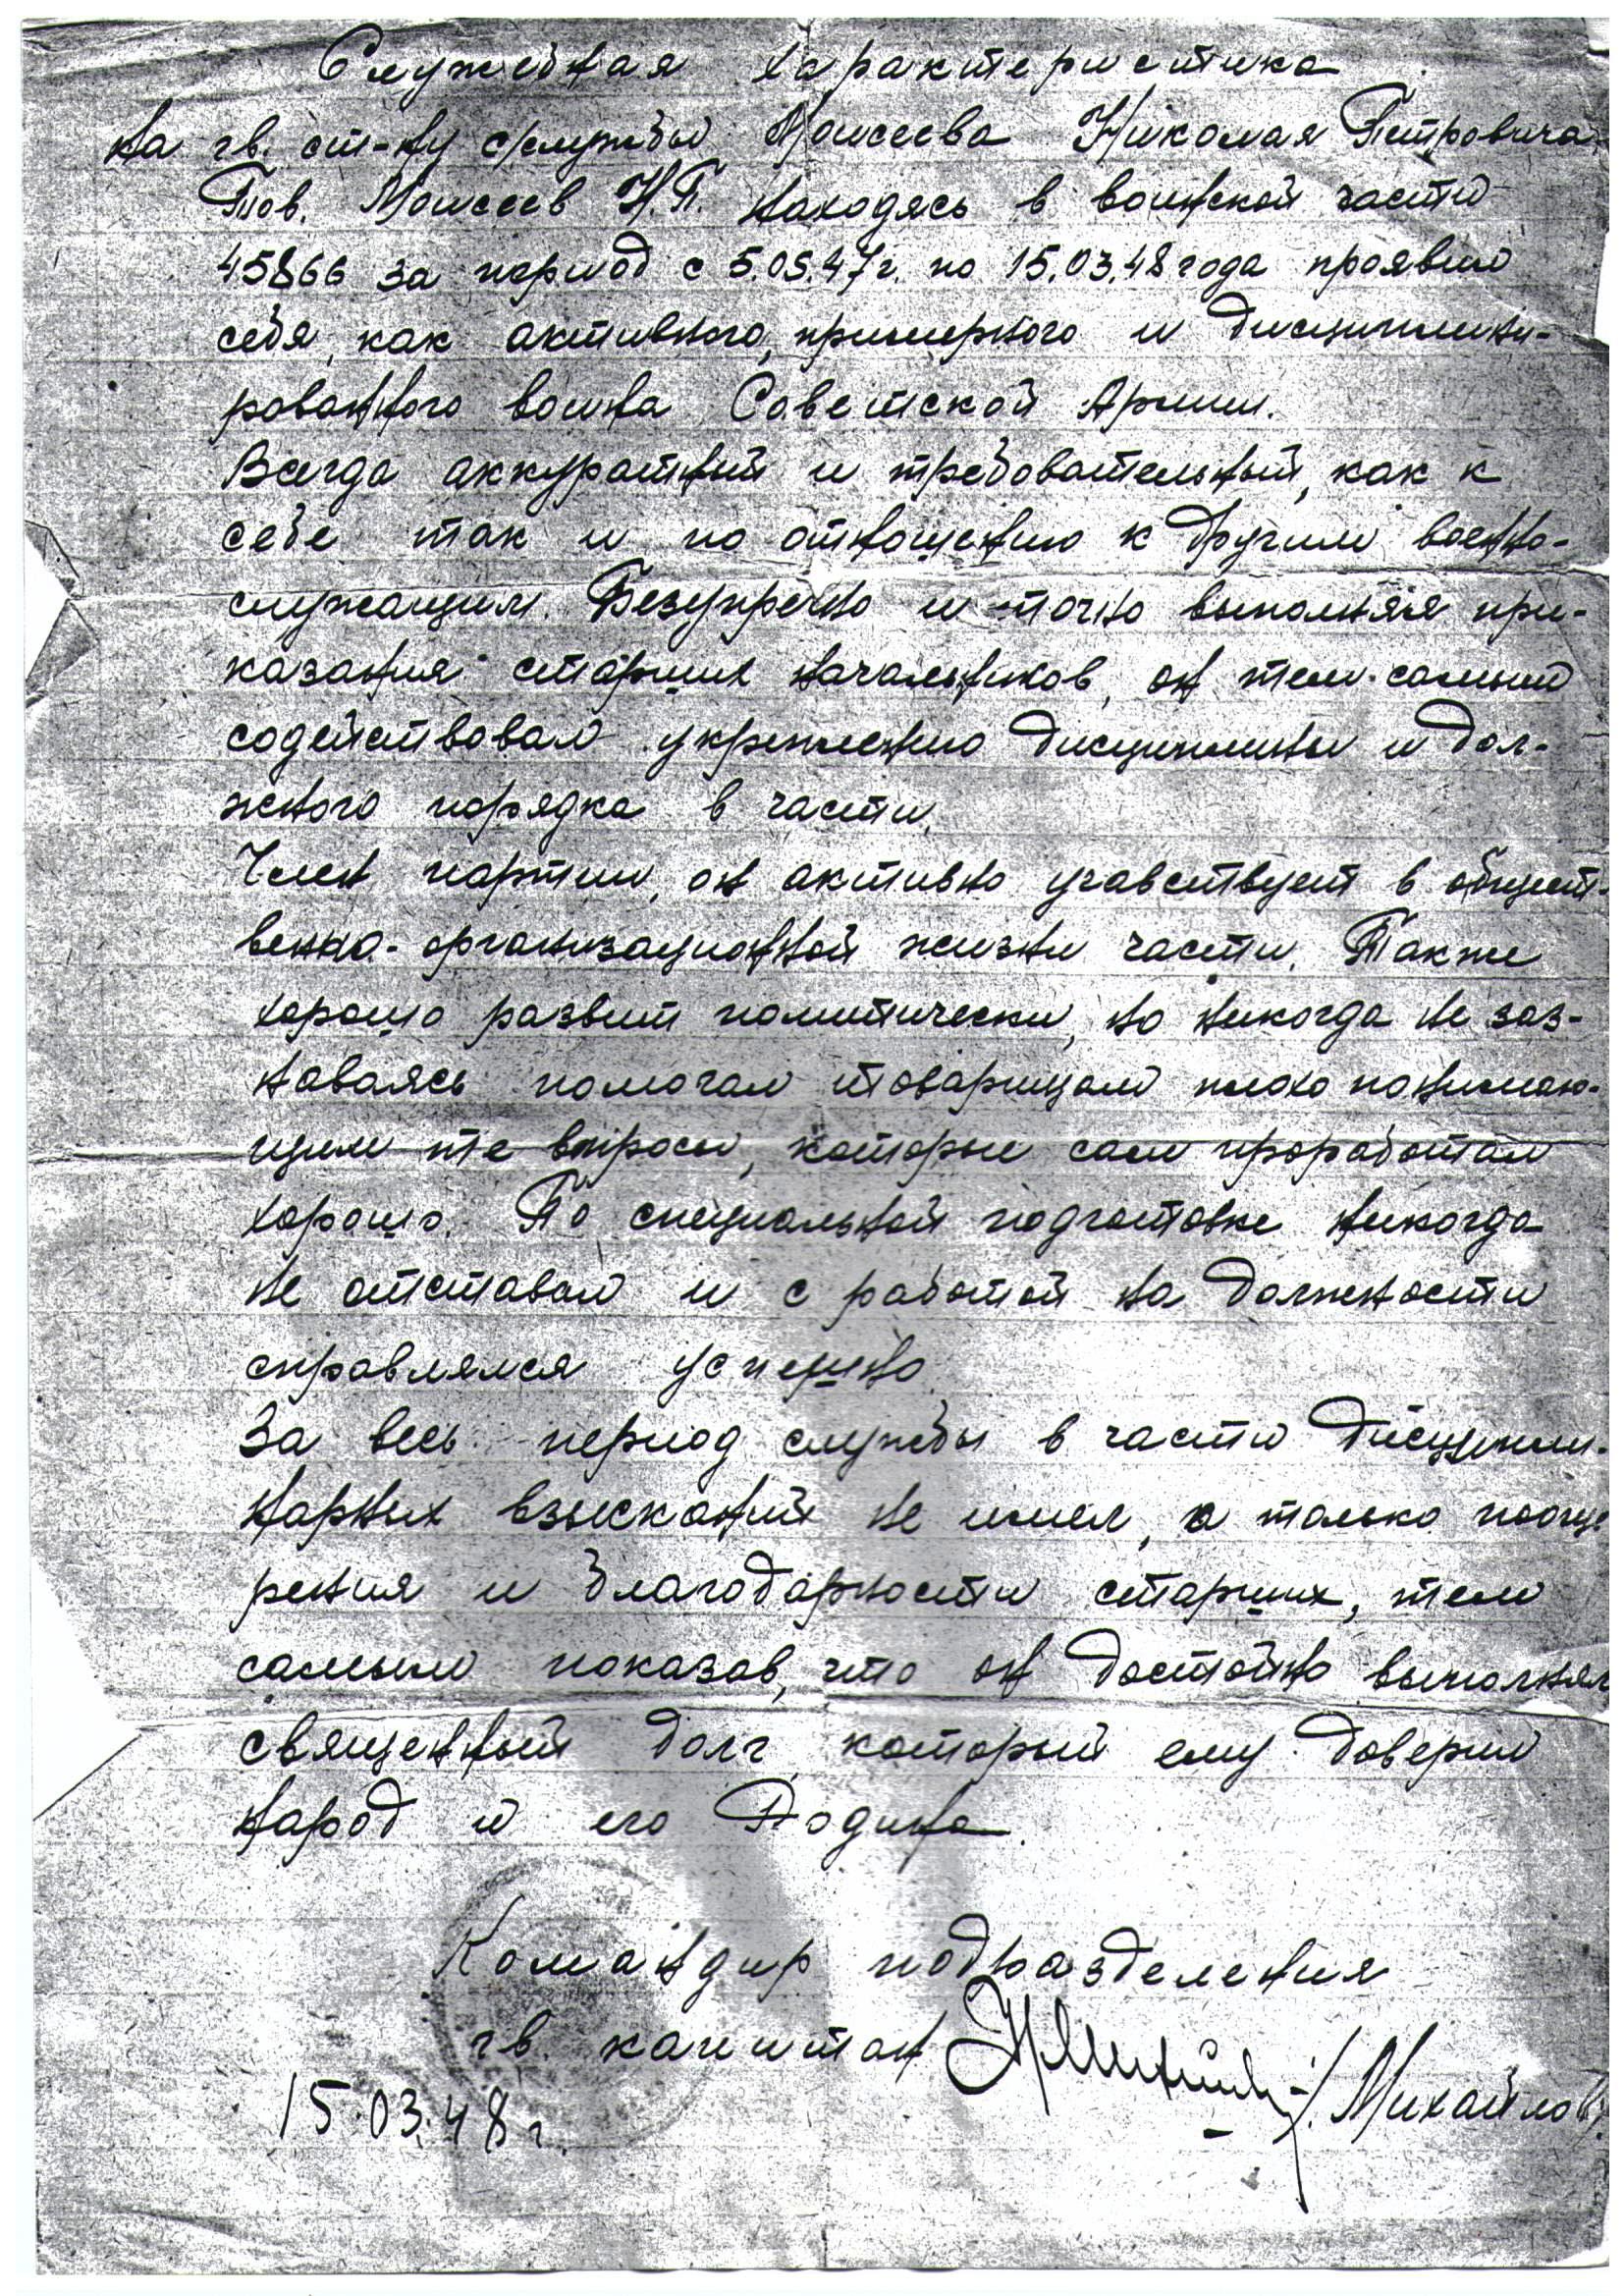 Служебная характеристика
на гв. ст-ну с/службы Моисеева Николая Петровича
Тов. Моисеев Н.П. находясь в воинской части
45866 за период с 5.05.47г. по 15.03.48 года проявил
себя, как активного, примерного и дисциплини-
рованного воина Советской Армии.
Всегда аккуратный и требовательный, как к
себе так и по отношению к другим военно-
служащим. Безупречно и точно выполняя при-
казания старших начальников, он тем самым
содействовал укреплению дисциплины и дол-
жного порядка в части.
Член партии, он активно учавствует в общест-
венно-организационной жизни части. Также
хорошо развит политически, но никогда не заз-
наваясь помогал товарищам плохо понимаю-
щим те вопросы, которые сам проработал
хорошо. По специальной подготовке никогда
не отставал и с работой на должности
справлялся успешно.
За весь период службы в части дисципли-
нарных взысканий не имел, а только поощ
рения и благодарности старших, тем
самым показав, что он достойно выполнял
священный долг, который ему доверил
народ и его Родина.
Командир подразделения
гв. капитан /Михайлов/
15.03.48г.